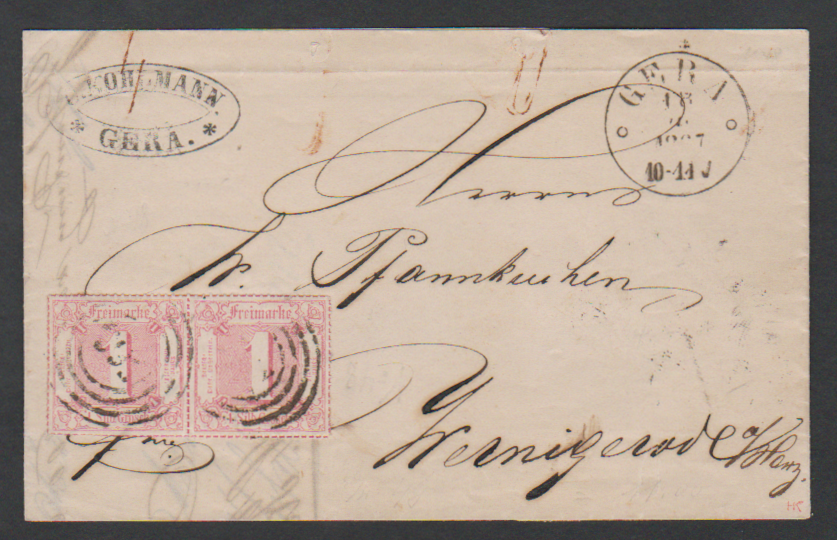 KOHLMANN
* GERA. *
GERA
1867
10-11 J
Herrn
W. Pfannkuchen
Freimarke Freimarke
1 1
fro.
Wernigerode a/Harz.
HK